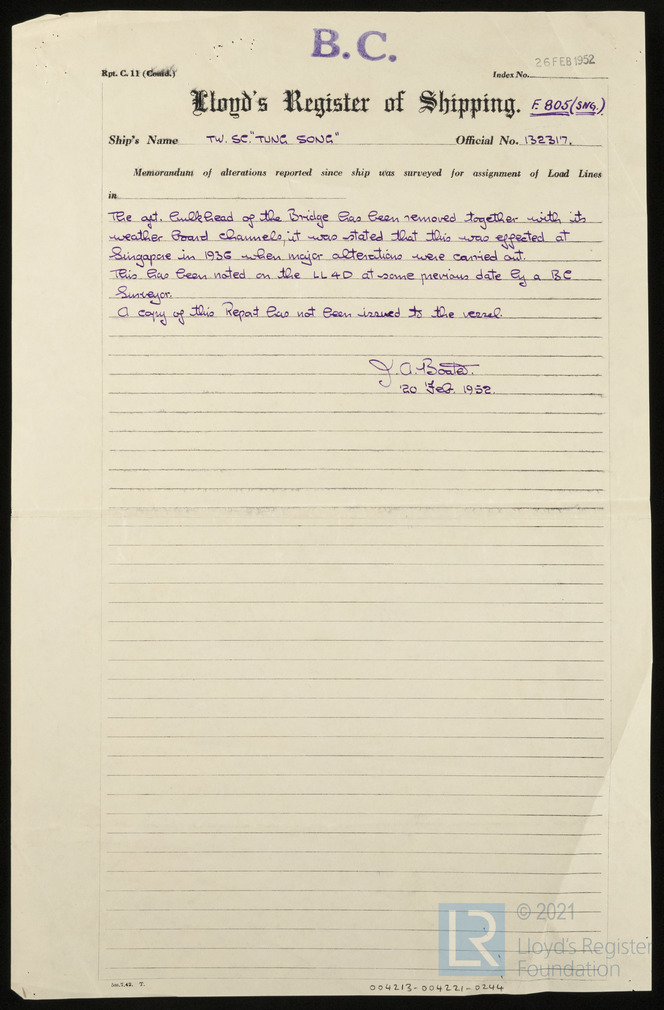 B.C.
26 FEB 1952
Rpt. C. 11 (Contd.)
Index No.
Lloyd's Register of Shipping. F. 805 (SNG.)
Ship's Name TW. SC. "TUNG SONG" Official No. 132317.
Memorandum of alterations reported since ship was surveyed for assignment of Load Lines
in
The aft. bulkhead of the Bridge has been removed together with its
weather board channels, it was stated that this was effected at
Singapore in 1936 when major alterations were carried out.
This has been noted on the LL4D at some previous date by a BC
Surveyor.
A copy of this Report has not been issued to the vessel.
J. A. Boater.
20 Feb. 1952.
LR
© 2021
Lloyd's Register
Foundation
004213-004221-0244